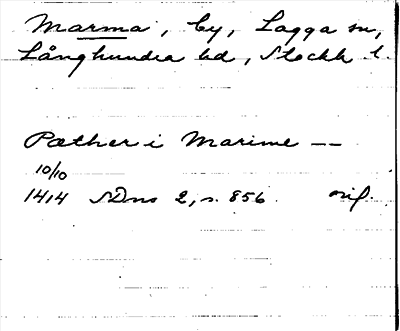 Marma, by, Lagga sn,
Långhundra hd, Stockh l.
Pæther i Marime --
10/10
1414 SDns 2, s. 856. orig.